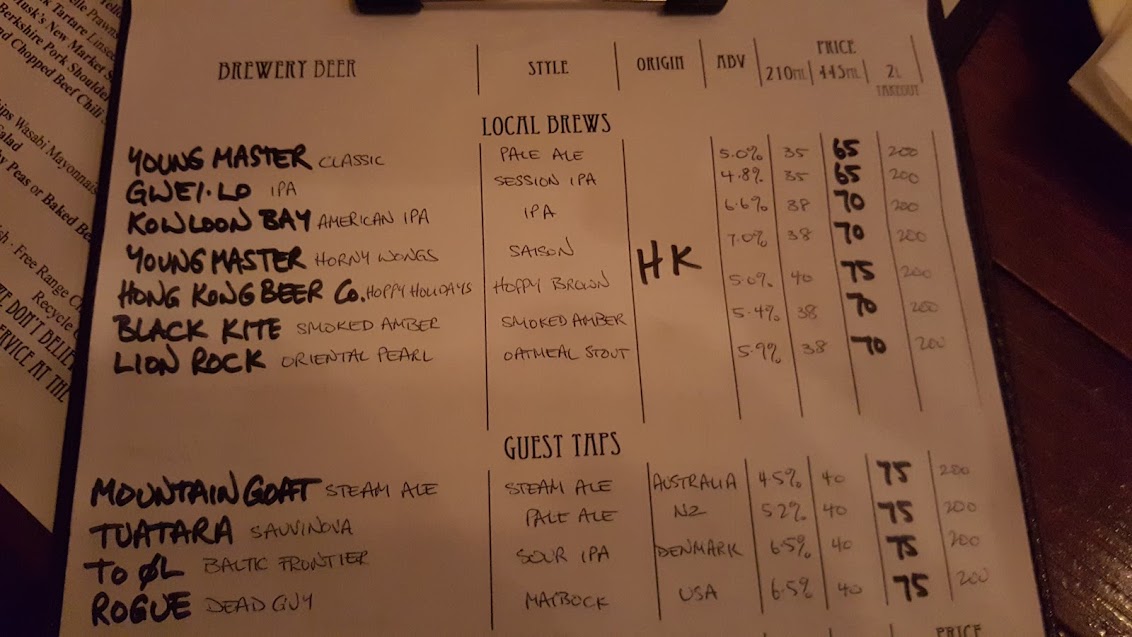 Prawns
Tartare Linseed
Musk's New Market
Berkshire Pork Shoulder
Chopped Beef Chili
Wasabi Mayonnaise
Salad
Peas or Baked
Free Range
Recycle
WE DON'T
SERVICE AT THE
BREWERY BEER STYLE ORIGIN ABV PRICE
210ML 445ML 2L
TAKEOUT
LOCAL BREWS
YOUNG MASTER CLASSIC PALE ALE 5.0% 35 65 200
GWEI.LO IPA SESSION IPA 4.8% 35 65 200
KOWLOON BAY AMERICAN IPA IPA 6.6% 38 70 200
YOUNG MASTER HORNY WONGS SAISON HK 7.0% 38 70 200
HONG KONG BEER Co. HOPPY HOLIDAYS HOPPY BROWN 5.0% 40 75 200
BLACK KITE SMOKED AMBER SMOKED AMBER 5.4% 38 70 200
LION ROCK ORIENTAL PEARL OATMEAL STOUT 5.9% 38 70 200
GUEST TAPS
MOUNTAIN GOAT STEAM ALE STEAM ALE AUSTRALIA 4.5% 40 75 200
TUATARA SAUVINOVA PALE ALE NZ 5.2% 40 75 200
To ØL BALTIC FRONTIER SOUR IPA DENMARK 6.5% 40 75 200
ROGUE DEAD GUY MAIBOCK USA 6.5% 40 75 200
PRICE